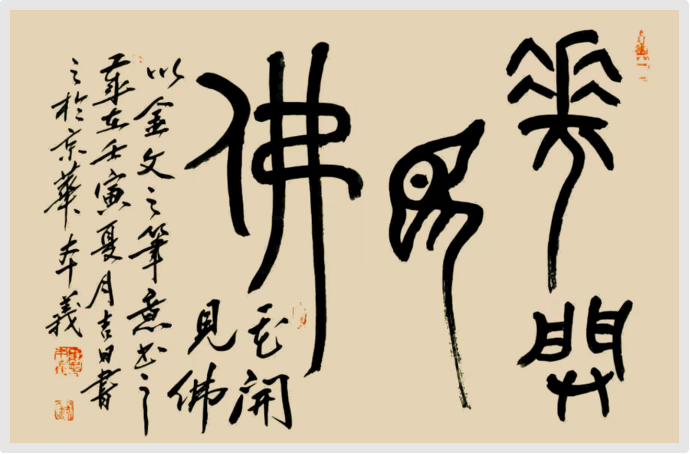 華開
見
佛
花開
見佛
以金文之筆意之
歲在壬寅夏月吉日書
之於京華本義